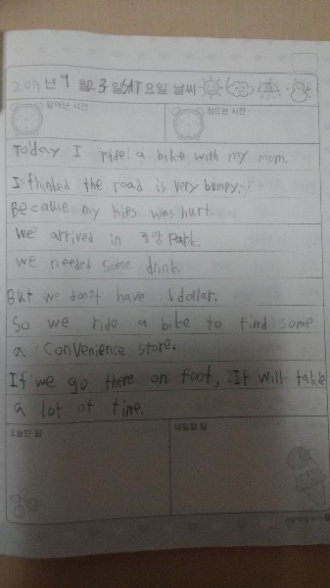 2017년 9월 23일 SAT요일 날씨
일어난 시간 잠드는 시간
Today I ride a bike with my mom.
I thinked the road is very bumpy.
Because my hips was hurt.
We arrived in 조양 Park.
we needed some drink.
But we don't have 1 dollar.
So we ride a bike to find some
a convenience store.
If we go there on foot, It will take
a lot of time.
오늘한 일 내일할 일